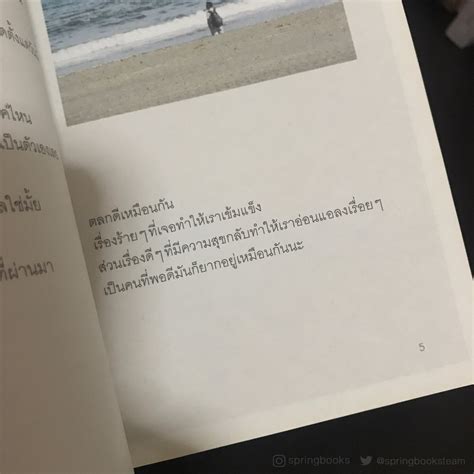 ค่ไหน
เป็นตัวเองเลย
ลใช่มั้ย
ที่ผ่านมา
ตลกดีเหมือนกัน
เรื่องร้ายๆที่เจอทำให้เราเข้มแข็ง
ส่วนเรื่องดีๆที่มีความสุขกลับทำให้เราอ่อนแอลงเรื่อยๆ
เป็นคนที่พอดีมันก็ยากอยู่เหมือนกันนะ
5
springbooks @springbooksteam